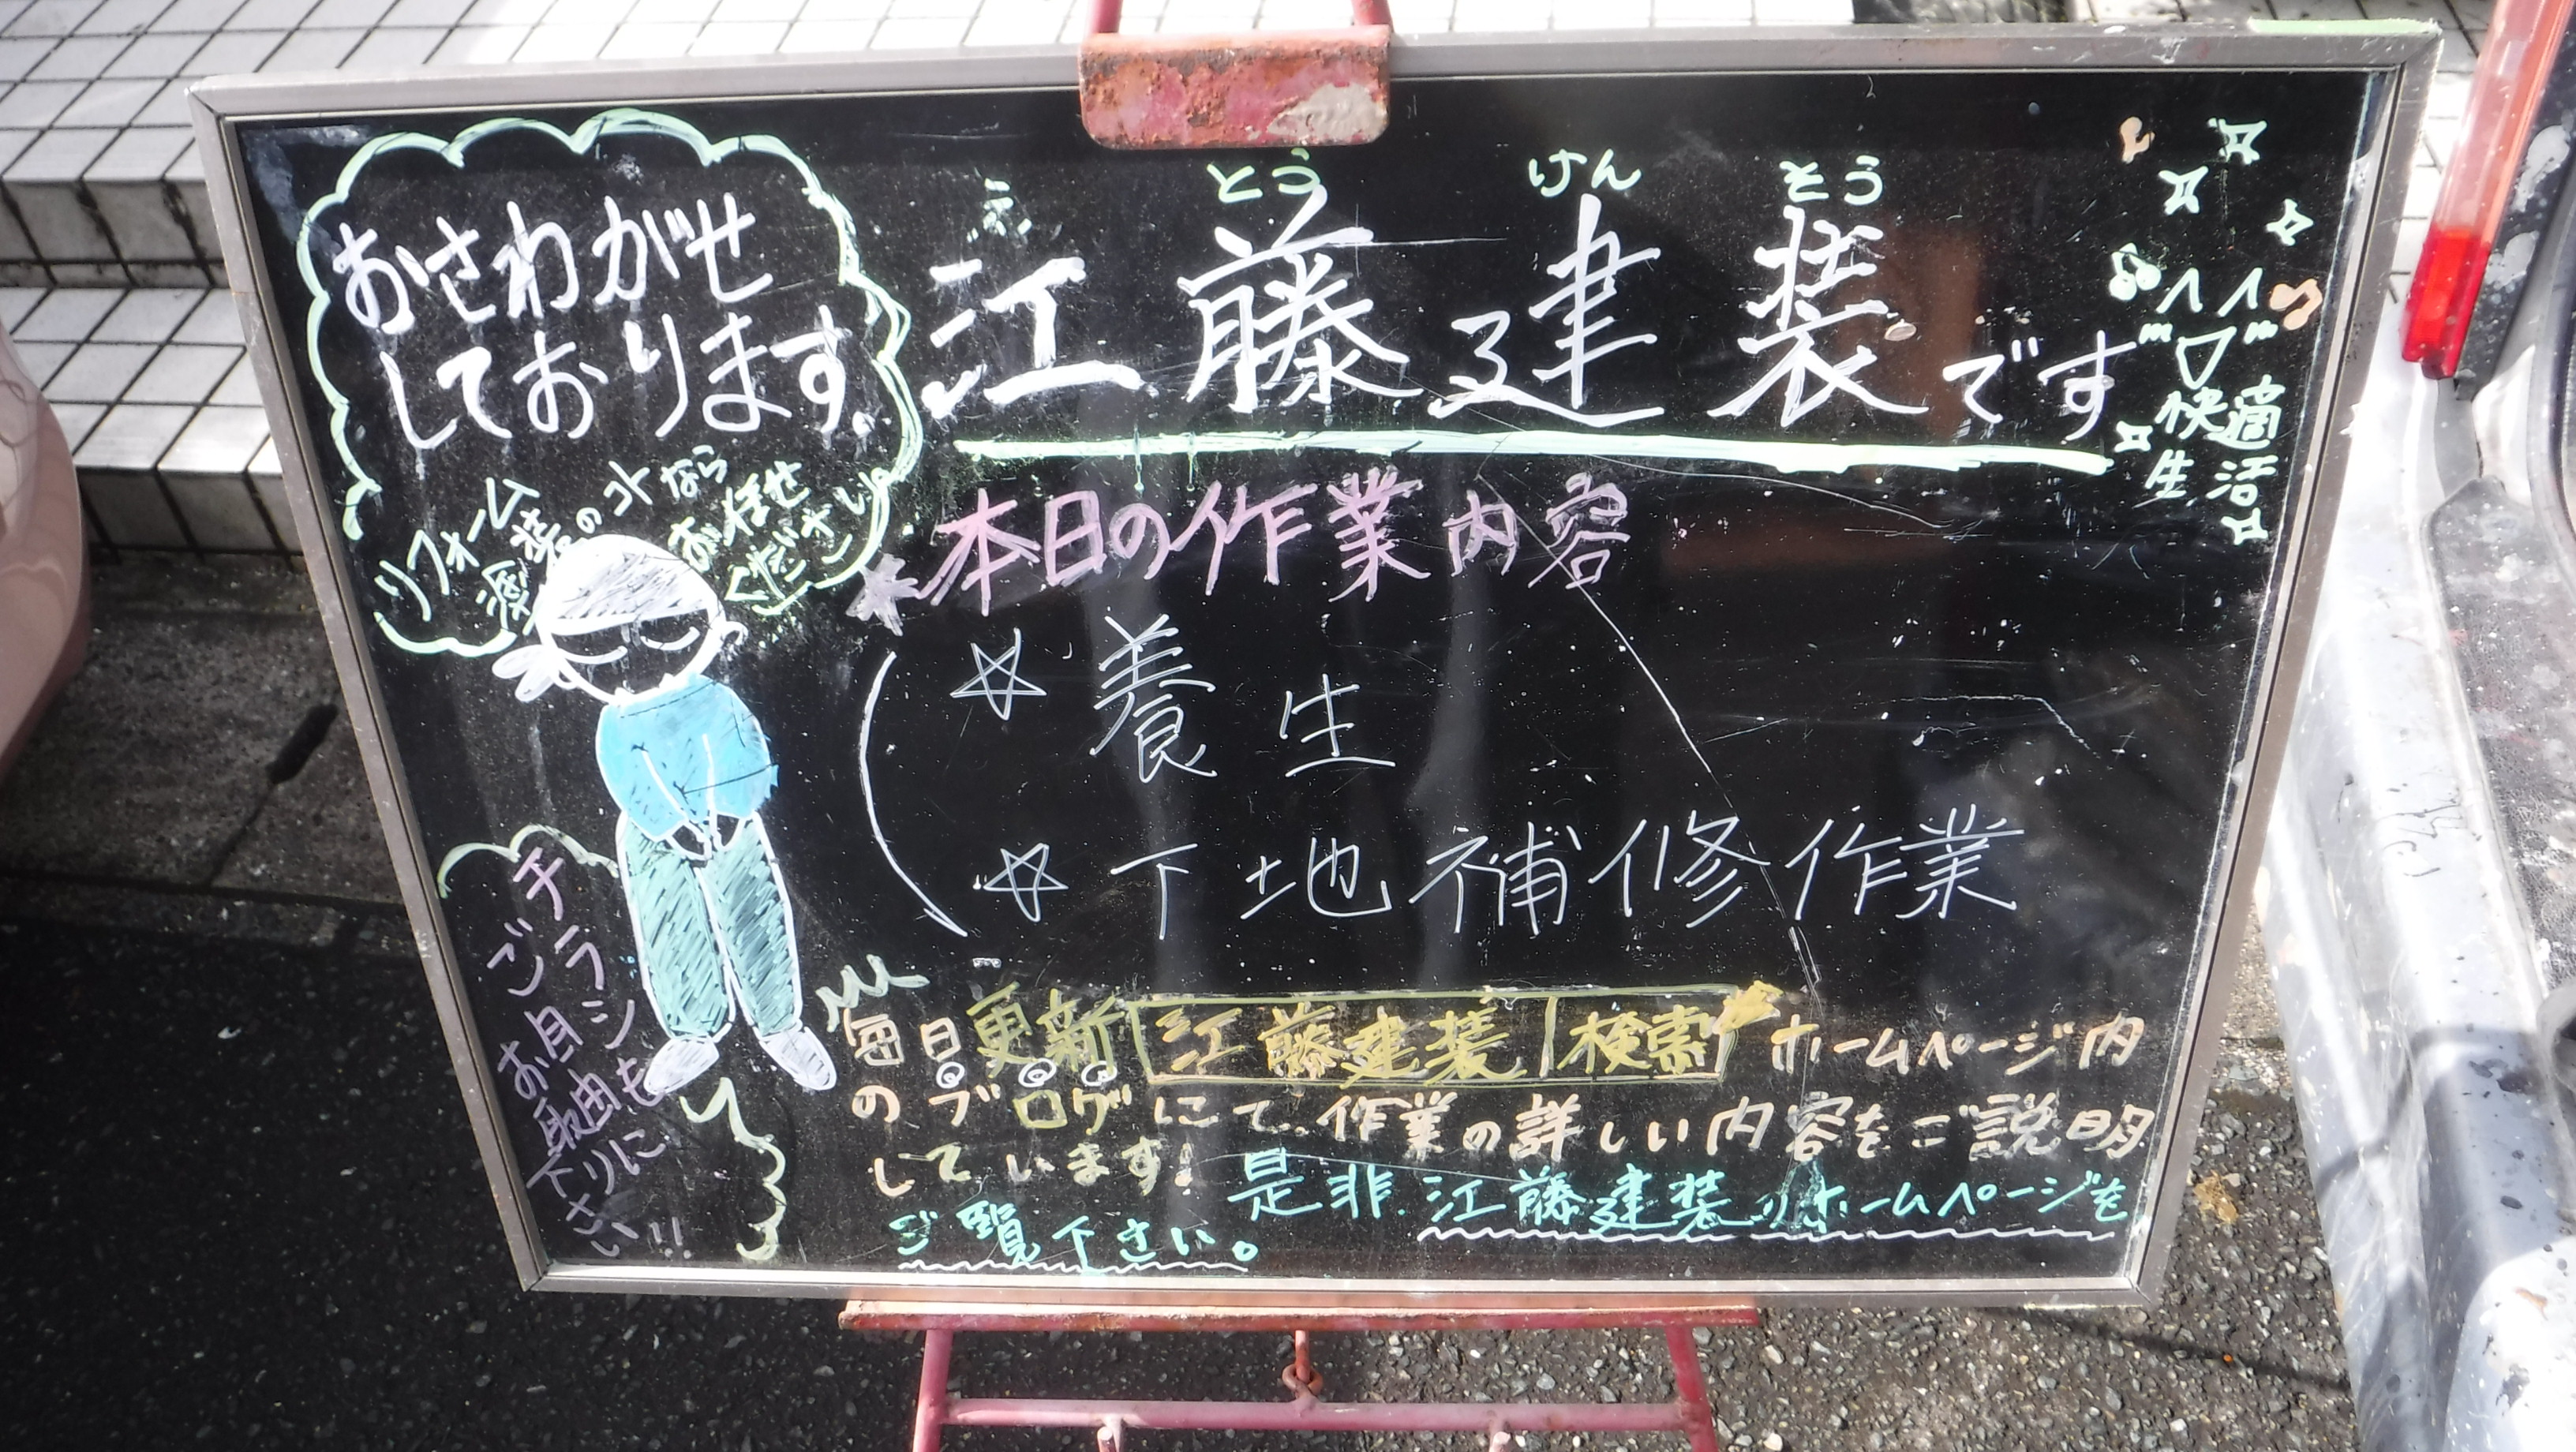 おさわがせ
しております。
リフォーム
塗装のコトなら
お任せ
ください
えとうけんそう
江藤建装です
快適
生活
本日の作業内容
☆ 養生
☆ 下地補修作業
チラシも
ご自由に
お取り下さい!!
毎日更新 江藤建装 検索 ホームページ内
のブログにて、作業の詳しい内容をご説明
しています!
是非、江藤建装のホームページを
ご覧下さい。